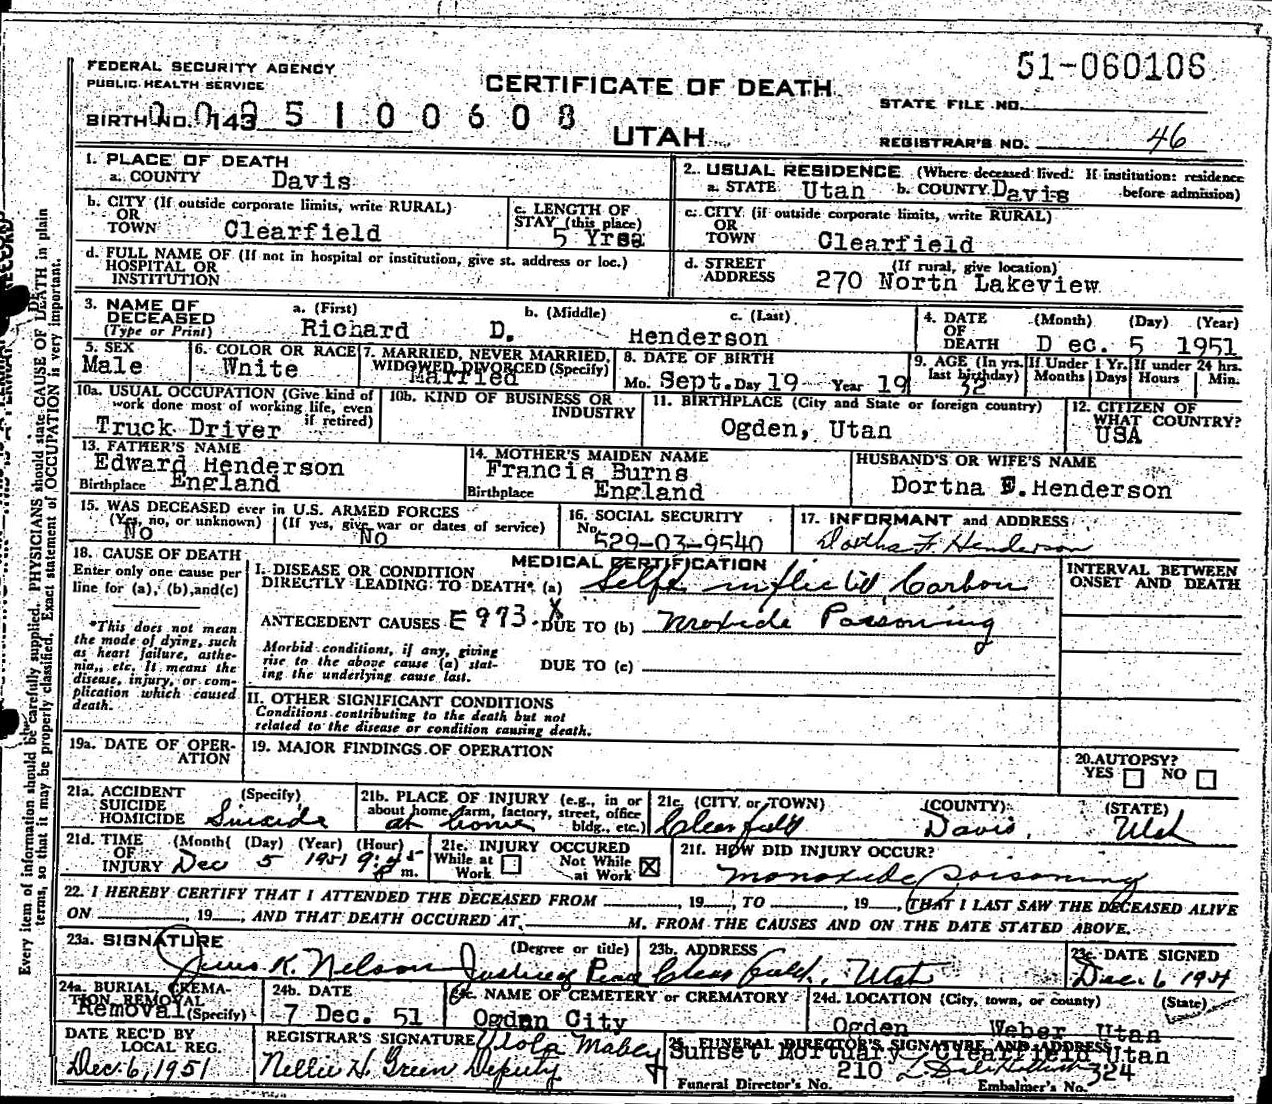 FEDERAL SECURITY AGENCY
PUBLIC HEALTH SERVICE
CERTIFICATE OF DEATH
51-060106
STATE FILE NO.
BIRTH NO. 143 5100608
UTAH
REGISTRAR'S NO. 46
1. PLACE OF DEATH
a. COUNTY Davis
2. USUAL RESIDENCE (Where deceased lived. If institution: residence before admission)
a. STATE Utan b. COUNTY Davis
b. CITY (If outside corporate limits, write RURAL)
OR
TOWN Clearfield
c. LENGTH OF
STAY (this place)
5 Yrs
c. CITY (if outside corporate limits, write RURAL)
OR
TOWN Clearfield
d. FULL NAME OF (If not in hospital or institution, give st. address or loc.)
HOSPITAL OR
INSTITUTION
d. STREET (If rural, give location)
ADDRESS 270 North Lakeview
3. NAME OF
DECEASED
(Type or Print)
a. (First) b. (Middle) c. (Last)
Richard D. Henderson
4. DATE (Month) (Day) (Year)
OF
DEATH Dec. 5 1951
5. SEX
Male
6. COLOR OR RACE
Wnite
7. MARRIED, NEVER MARRIED,
WIDOWED DIVORCED (Specify)
Married
8. DATE OF BIRTH
Mo. Sept. Day 19 Year 19
9. AGE (In yrs.
last birthday)
32
If Under 1 Yr.
Months Days
If under 24 hrs.
Hours Min.
10a. USUAL OCCUPATION (Give kind of
work done most of working life, even
if retired)
Truck Driver
10b. KIND OF BUSINESS OR
INDUSTRY
11. BIRTHPLACE (City and State or foreign country)
Ogden, Utan
12. CITIZEN OF
WHAT COUNTRY?
USA
13. FATHER'S NAME
Edward Henderson
Birthplace England
14. MOTHER'S MAIDEN NAME
Francis Burns
Birthplace England
HUSBAND'S OR WIFE'S NAME
Dortna F. Henderson
15. WAS DECEASED ever in U.S. ARMED FORCES
(Yes, no, or unknown) (If yes, give war or dates of service)
No No
16. SOCIAL SECURITY
No.
529-03-9540
17. INFORMANT and ADDRESS
Dortha F. Henderson
18. CAUSE OF DEATH
Enter only one cause per
line for (a), (b),and(c)
*This does not mean
the mode of dying, such
as heart failure, asthe-
nia, etc. It means the
disease, injury, or com-
plication which caused
death.
MEDICAL CERTIFICATION
I. DISEASE OR CONDITION
DIRECTLY LEADING TO DEATH* (a) Self inflicted Carbon
ANTECEDENT CAUSES E973.X DUE TO (b) Monoxide Poisoning
Morbid conditions, if any, giving
rise to the above cause (a) stat-
ing the underlying cause last.
DUE TO (c)
INTERVAL BETWEEN
ONSET AND DEATH
II. OTHER SIGNIFICANT CONDITIONS
Conditions contributing to the death but not
related to the disease or condition causing death.
19a. DATE OF OPER-
ATION
19. MAJOR FINDINGS OF OPERATION
20. AUTOPSY?
YES NO
21a. ACCIDENT (Specify)
SUICIDE
HOMICIDE Suicide
21b. PLACE OF INJURY (e.g., in or
about home, farm, factory, street, office
bldg., etc.)
at home
21c. (CITY or TOWN) (COUNTY) (STATE)
Clearfield Davis, Utah
21d. TIME (Month) (Day) (Year) (Hour)
OF
INJURY Dec 5 1951 9:45 P m.
21e. INJURY OCCURED
While at Work Not While at Work
21f. HOW DID INJURY OCCUR?
monoxide poisoning
22. I HEREBY CERTIFY THAT I ATTENDED THE DECEASED FROM , 19 , TO , 19 , THAT I LAST SAW THE DECEASED ALIVE
ON , 19 , AND THAT DEATH OCCURED AT M. FROM THE CAUSES AND ON THE DATE STATED ABOVE.
23a. SIGNATURE (Degree or title)
K. Nelson Justice of Peace
23b. ADDRESS
Clearfield, Utah
23c. DATE SIGNED
Dec. 6 1951
24a. BURIAL, CREMA-
TION, REMOVAL
(Specify)
Removal
24b. DATE
7 Dec. 51
24c. NAME OF CEMETERY or CREMATORY
Ogden City
24d. LOCATION (City, town, or county) (State)
Ogden Weber Utan
DATE REC'D BY
LOCAL REG.
Dec. 6, 1951
REGISTRAR'S SIGNATURE Viola Mabey
Nellie H. Green Deputy
25. FUNERAL DIRECTOR'S SIGNATURE AND ADDRESS
Sunset Mortuary Clearfield Utan
210 324
Funeral Director's No. Embalmer's No.
Every item of information should be carefully supplied. PHYSICIANS should state CAUSE OF DEATH in plain
terms, so that it may be properly classified. Exact statement of OCCUPATION is very important.